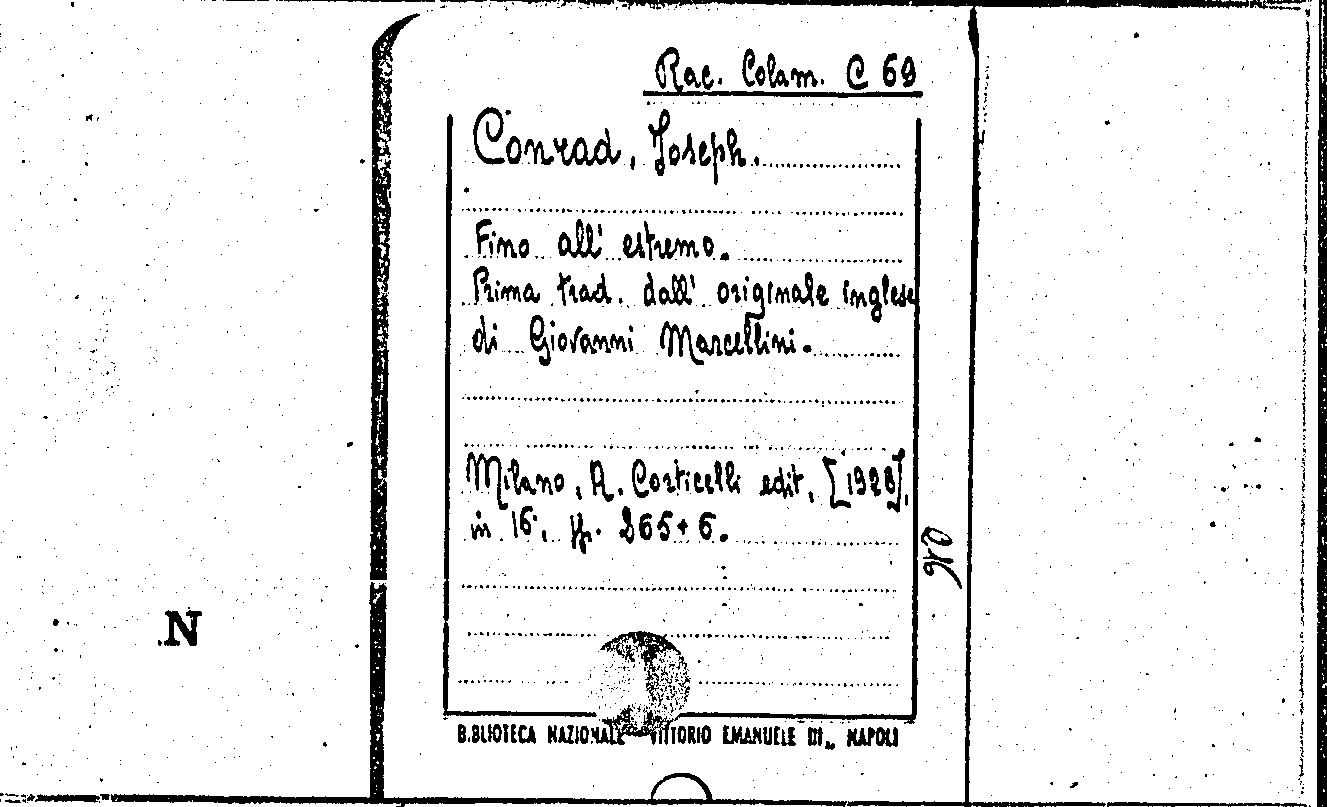 Rac. Colam. C 69
Conrad, Joseph.
Fino all' estremo.
Prima trad. dall' originale inglese
di Giovanni Marcellini.
Milano, A. Corticelli edit, [1928],
in 16°, pp. 265+6.
N
B.BLIOTECA NAZIONALE VITTORIO EMANUELE III„ NAPOLI